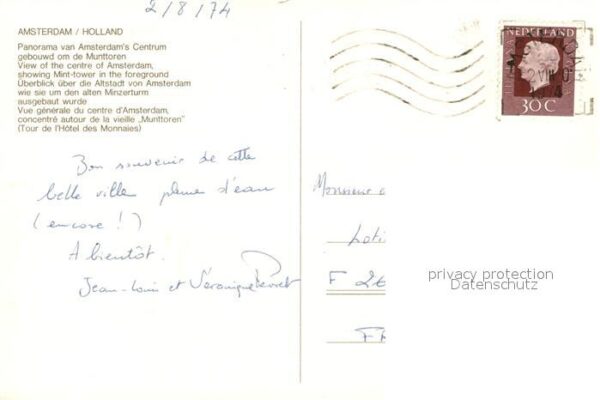 2/8/74
AMSTERDAM / HOLLAND
Panorama van Amsterdam's Centrum
gebouwd om de Munttoren
View of the centre of Amsterdam,
showing Mint-tower in the foreground
Überblick über die Altstadt von Amsterdam
wie sie um den alten Minzerturm
ausgebaut wurde
Vue générale du centre d'Amsterdam,
concentré autour de la vieille „Munttoren"
(Tour de l'Hôtel des Monnaies)
NEDERLAND
30 C
Bon souvenir de cette
belle ville pleine d'eau
(encore !)
A bientôt.
Jean-Louis et Véronique
Monsieur
Loti
F 26
FR
privacy protection
Datenschutz